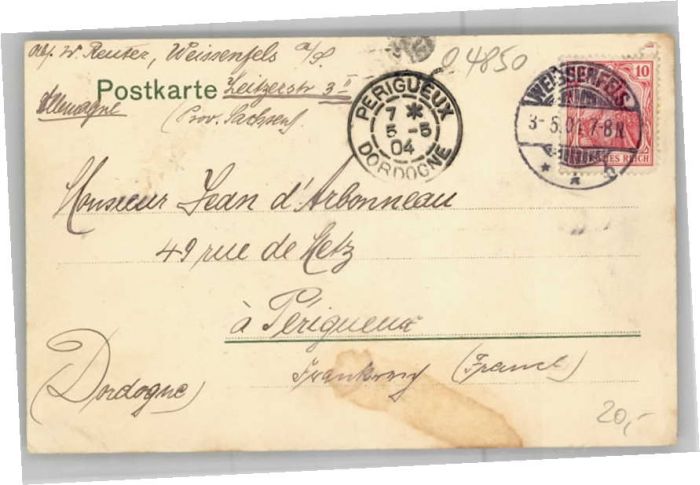 Abs. W. Reuter, Weissenfels a/S.
Postkarte Zeitzerstr 3 II
Allemagne (Prov. Sachsen)
04850
PERIGUEUX
7 *
5-5
04
DORDOGNE
WEISSENFELS
3-5.04.7-8N.
* *
10
REICH
Monsieur Jean d'Arbonneau
49 rue de Metz
à Périgueux
Frankreich (France)
(Dordogne)
20,-